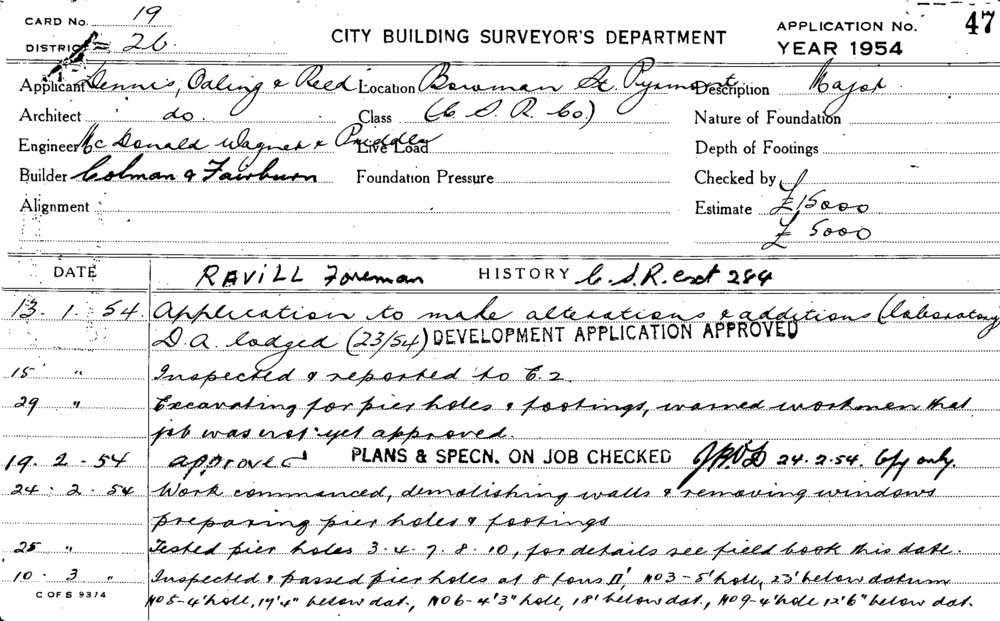 CARD No. 19
DISTRICT = 26.
CITY BUILDING SURVEYOR'S DEPARTMENT
APPLICATION No. 47
YEAR 1954
Applicant Dennis, Oaling & Reed Location Bowman St. Pyrmont Description Major
Architect do. Class (C.S.R. Co.) Nature of Foundation
Engineer McDonald Wagner & Priddle Live Load Depth of Footings
Builder Colman & Fairburn Foundation Pressure Checked by
Alignment Estimate £15000
£ 5000
DATE REVILL Foreman HISTORY C.S.R. ext 284
13. 1. 54. Application to make alterations & additions (laboratory
D.A. lodged (23/54) DEVELOPMENT APPLICATION APPROVED
15 " Inspected & reported to C.2.
29 " Excavating for pier holes & footings, warned workmen that
job was not yet approved.
19. 2. 54 approved PLANS & SPECN. ON JOB CHECKED 24.2.54. Cpy only.
24. 2. 54 Work commenced, demolishing walls & removing windows
preparing pier holes & footings
25 " Tested pier holes 3.4.7.8.10, for details see field book this date.
10. 3 " Inspected & passed pier holes at 8 tons □', NO 3 - 5' hole, 23' below datum
C OF S 93/4 NO 5 - 4' hole, 19'4" below dat., NO 6 - 4'3" hole, 18' below dat., NO 9 - 4' hole 12'6" below dat.